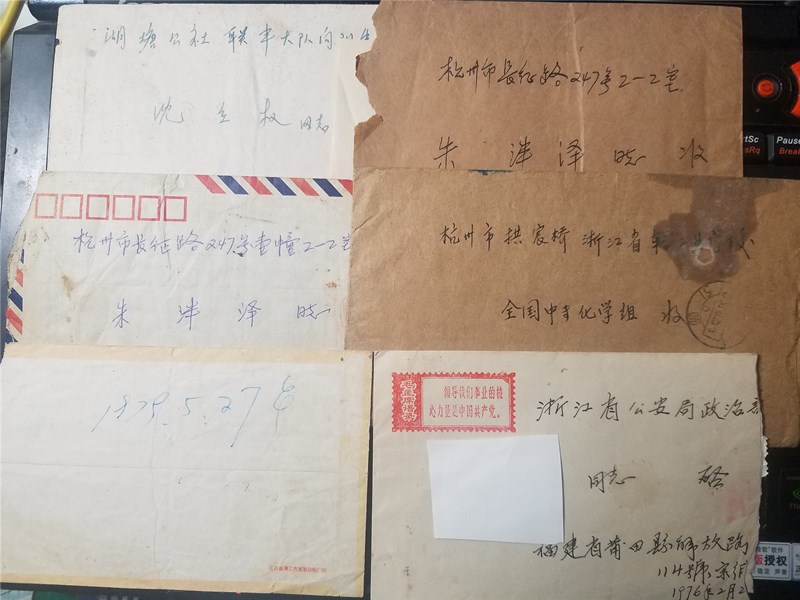 湖塘公社 联丰大队
沈 立 权 同志
杭州市长征路247号2-2室
朱 泮 泽 同志 收
杭州市长征路247号壹幢2-2室
朱 泮 泽 同志
杭州市 拱宸桥 浙江省
全国中专化学组 收
1979.5.27
毛主席语录
领导我们事业的核
心力量是中国共产党。
浙江省公安局政治部
同志 启
福建省莆田县解放路
114號
1976年2月2
PrtSc
SysRq
Pause
Break
授权